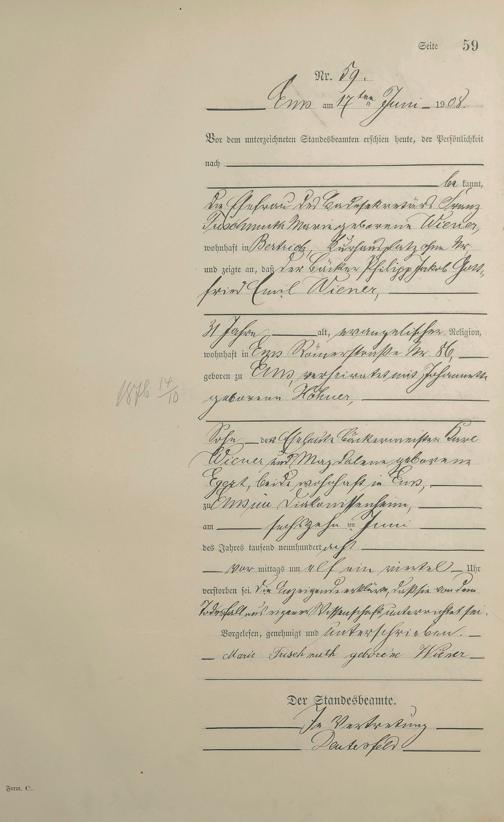 Seite 59
Nr. 59.
Ems am 17ten Juni 1908.
Vor dem unterzeichneten Standesbeamten erschien heute, der Persönlichkeit
nach
be kannt,
die Ehefrau des Badesekretärs Franz
Tuschmuth Marie geborene Wiener,
wohnhaft in Bertrich, Kurhausplatz ohne Nr.
und zeigte an, daß der Bäcker Philipp Jakob Gott-
fried Emil Wiener,
31 Jahre alt, evangelischer Religion,
wohnhaft in Ems Römerstraße Nr. 86,
geboren zu Ems, verheiratet mit Johannette
geborenen Höhner,
1876 14/10
Sohn der Eheleute Bäckermeister Karl
Wiener und Magdalene geborene
Egert, beide wohnhaft in Ems,
zu Ems im Diakonissenheim,
am sechszehn ten Juni
des Jahres tausend neunhundert acht
vor mittags um elf ein viertel Uhr
verstorben sei. Die Anzeigende erklärte, daß sie von dem
Todesfall aus eigener Wissenschaft unterrichtet sei.
Vorgelesen, genehmigt und unterschrieben.
Marie Tuschmuth geborene Wiener
Der Standesbeamte.
In Vertretung
Form. C.